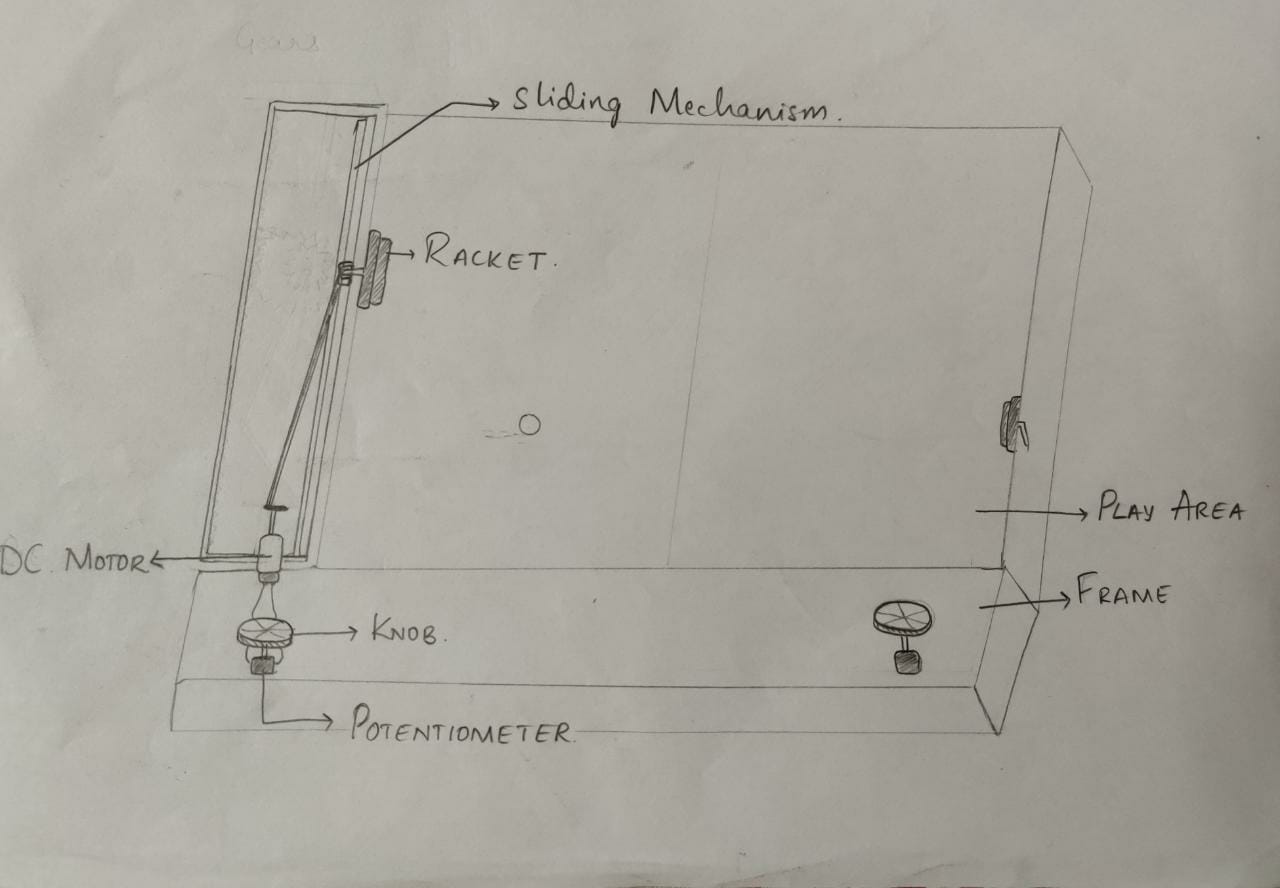 Gears
Sliding Mechanism.
RACKET.
PLAY AREA
DC. MOTOR
FRAME
KNOB.
POTENTIOMETER.